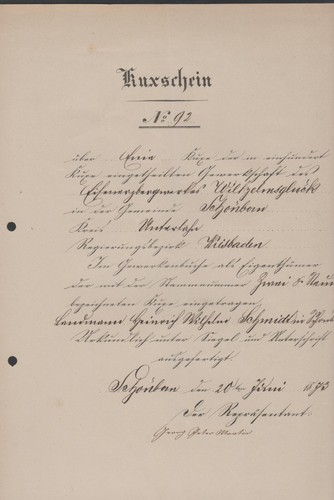 Kuxschein
No 92
über Eine Kuxe der in einhundert
Kuxe eingetheilten Gewerkschaft des
Eisenerzbergwerkes Wilhelmsglück
in der Gemeinde Schönborn
Kreis Unterlahn
Regierungsbezirk Wiesbaden
Im Gewerkenbuche als Eigenthümer
der mit der Nummer Zwei &
bezeichneten Kuxe eingetragen,
Landmann Heinrich Wilhelm Schmidt zu
Urkundlich unter Siegel und Unterschrift
ausgefertigt.
Schönborn den 20ten Juni 1873
Der Repräsentant
Georg Peter